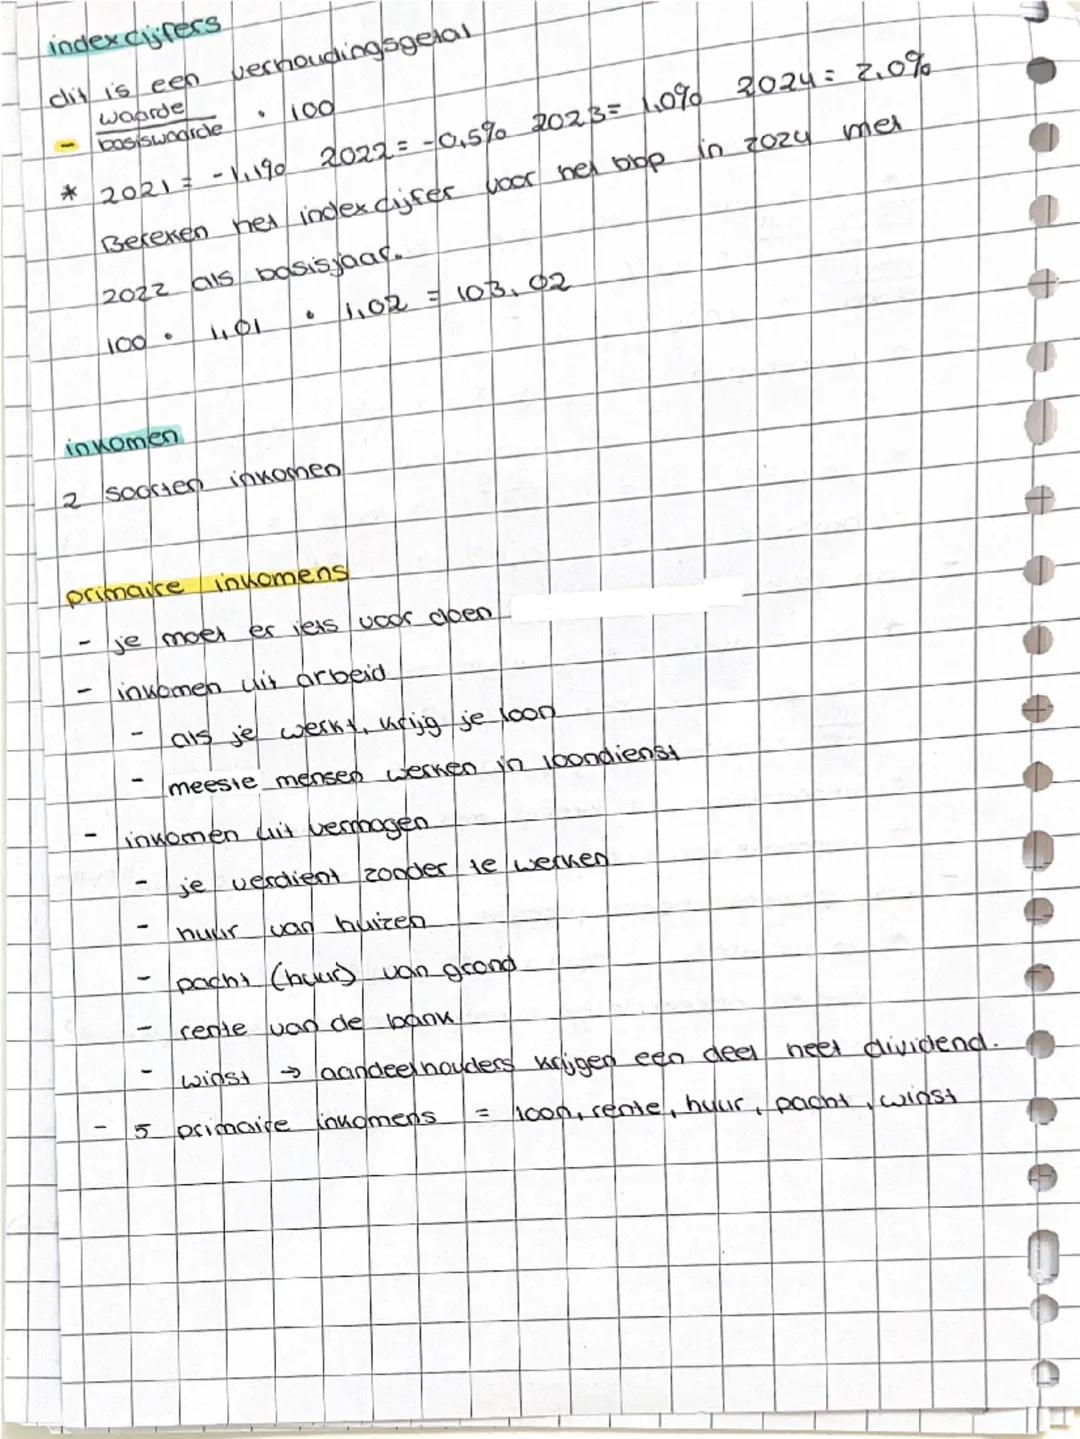 indexcijfers
dit is een verhoudingsgetal
- waarde
basiswaarde · 100
* 2021 = -1,1% 2022 = -0,5% 2023 = 1,0% 2024 = 2,0%
Bereken het indexcijfer voor het bbp in 2024 met
2022 als basisjaar.
100 · 1,01 · 1,02 = 103,02
inkomen
2 soorten inkomen
primaire inkomens
- je moet er iets voor doen
- inkomen uit arbeid
- als je werkt, krijg je loon
- meeste mensen werken in loondienst
- inkomen uit vermogen
- je verdient zonder te werken
- huur van huizen
- pacht (huur) van grond
- rente van de bank
- winst → aandeelhouders krijgen een deel heet dividend.
- 5 primaire inkomens = loon, rente, huur, pacht, winst